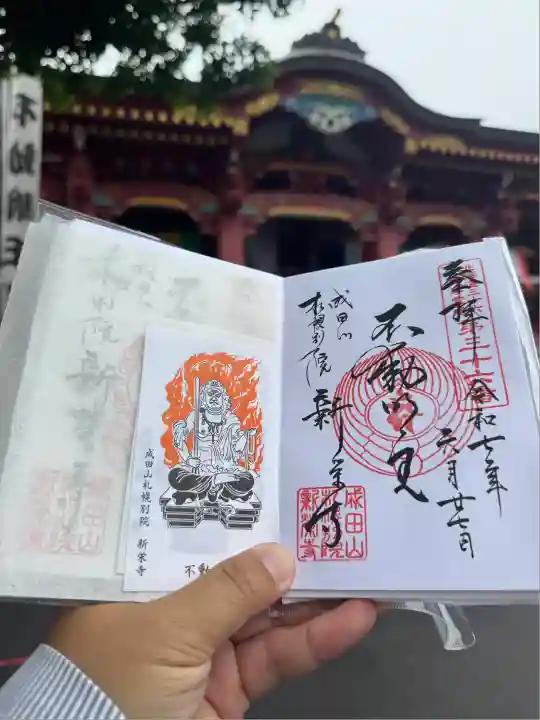 不動明王
奉拝
令和七年
六月廿七日
不動明王
成田山
札幌別院
新栄寺
成田山
札幌別院
新栄寺
成田山札幌別院 新栄寺
不動